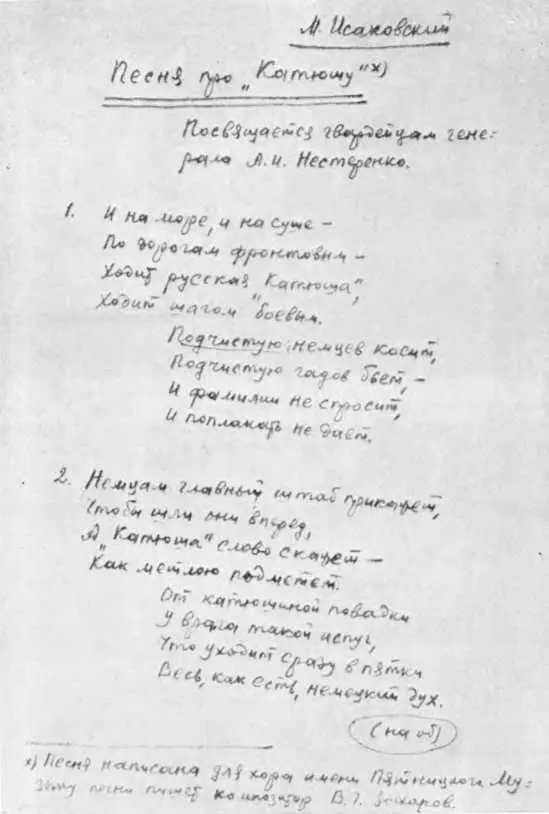 М. Исаковский
Песня про „Катюшу" х)
Посвящается гвардейцам гене-
рала А.И. Нестеренко.
1. И на море, и на суше –
По дорогам фронтовым –
Ходит русская „Катюша",
Ходит шагом боевым.
Подчистую немцев косит,
Подчистую гадов бьет, –
И фамилии не спросит,
И поплакать не дает.
2. Немцам главный штаб прикажет,
Чтобы шли они вперед,
А „Катюша" слово скажет –
Как метлою подметет.
От катюшиной повадки
У врага такой испуг,
Что уходит сразу в пятки
Весь, как есть, немецкий дух.
(на об)
х) Песня написана для хора имени Пятницкого. Му-
зыку песни пишет композитор В.Г. Захаров.